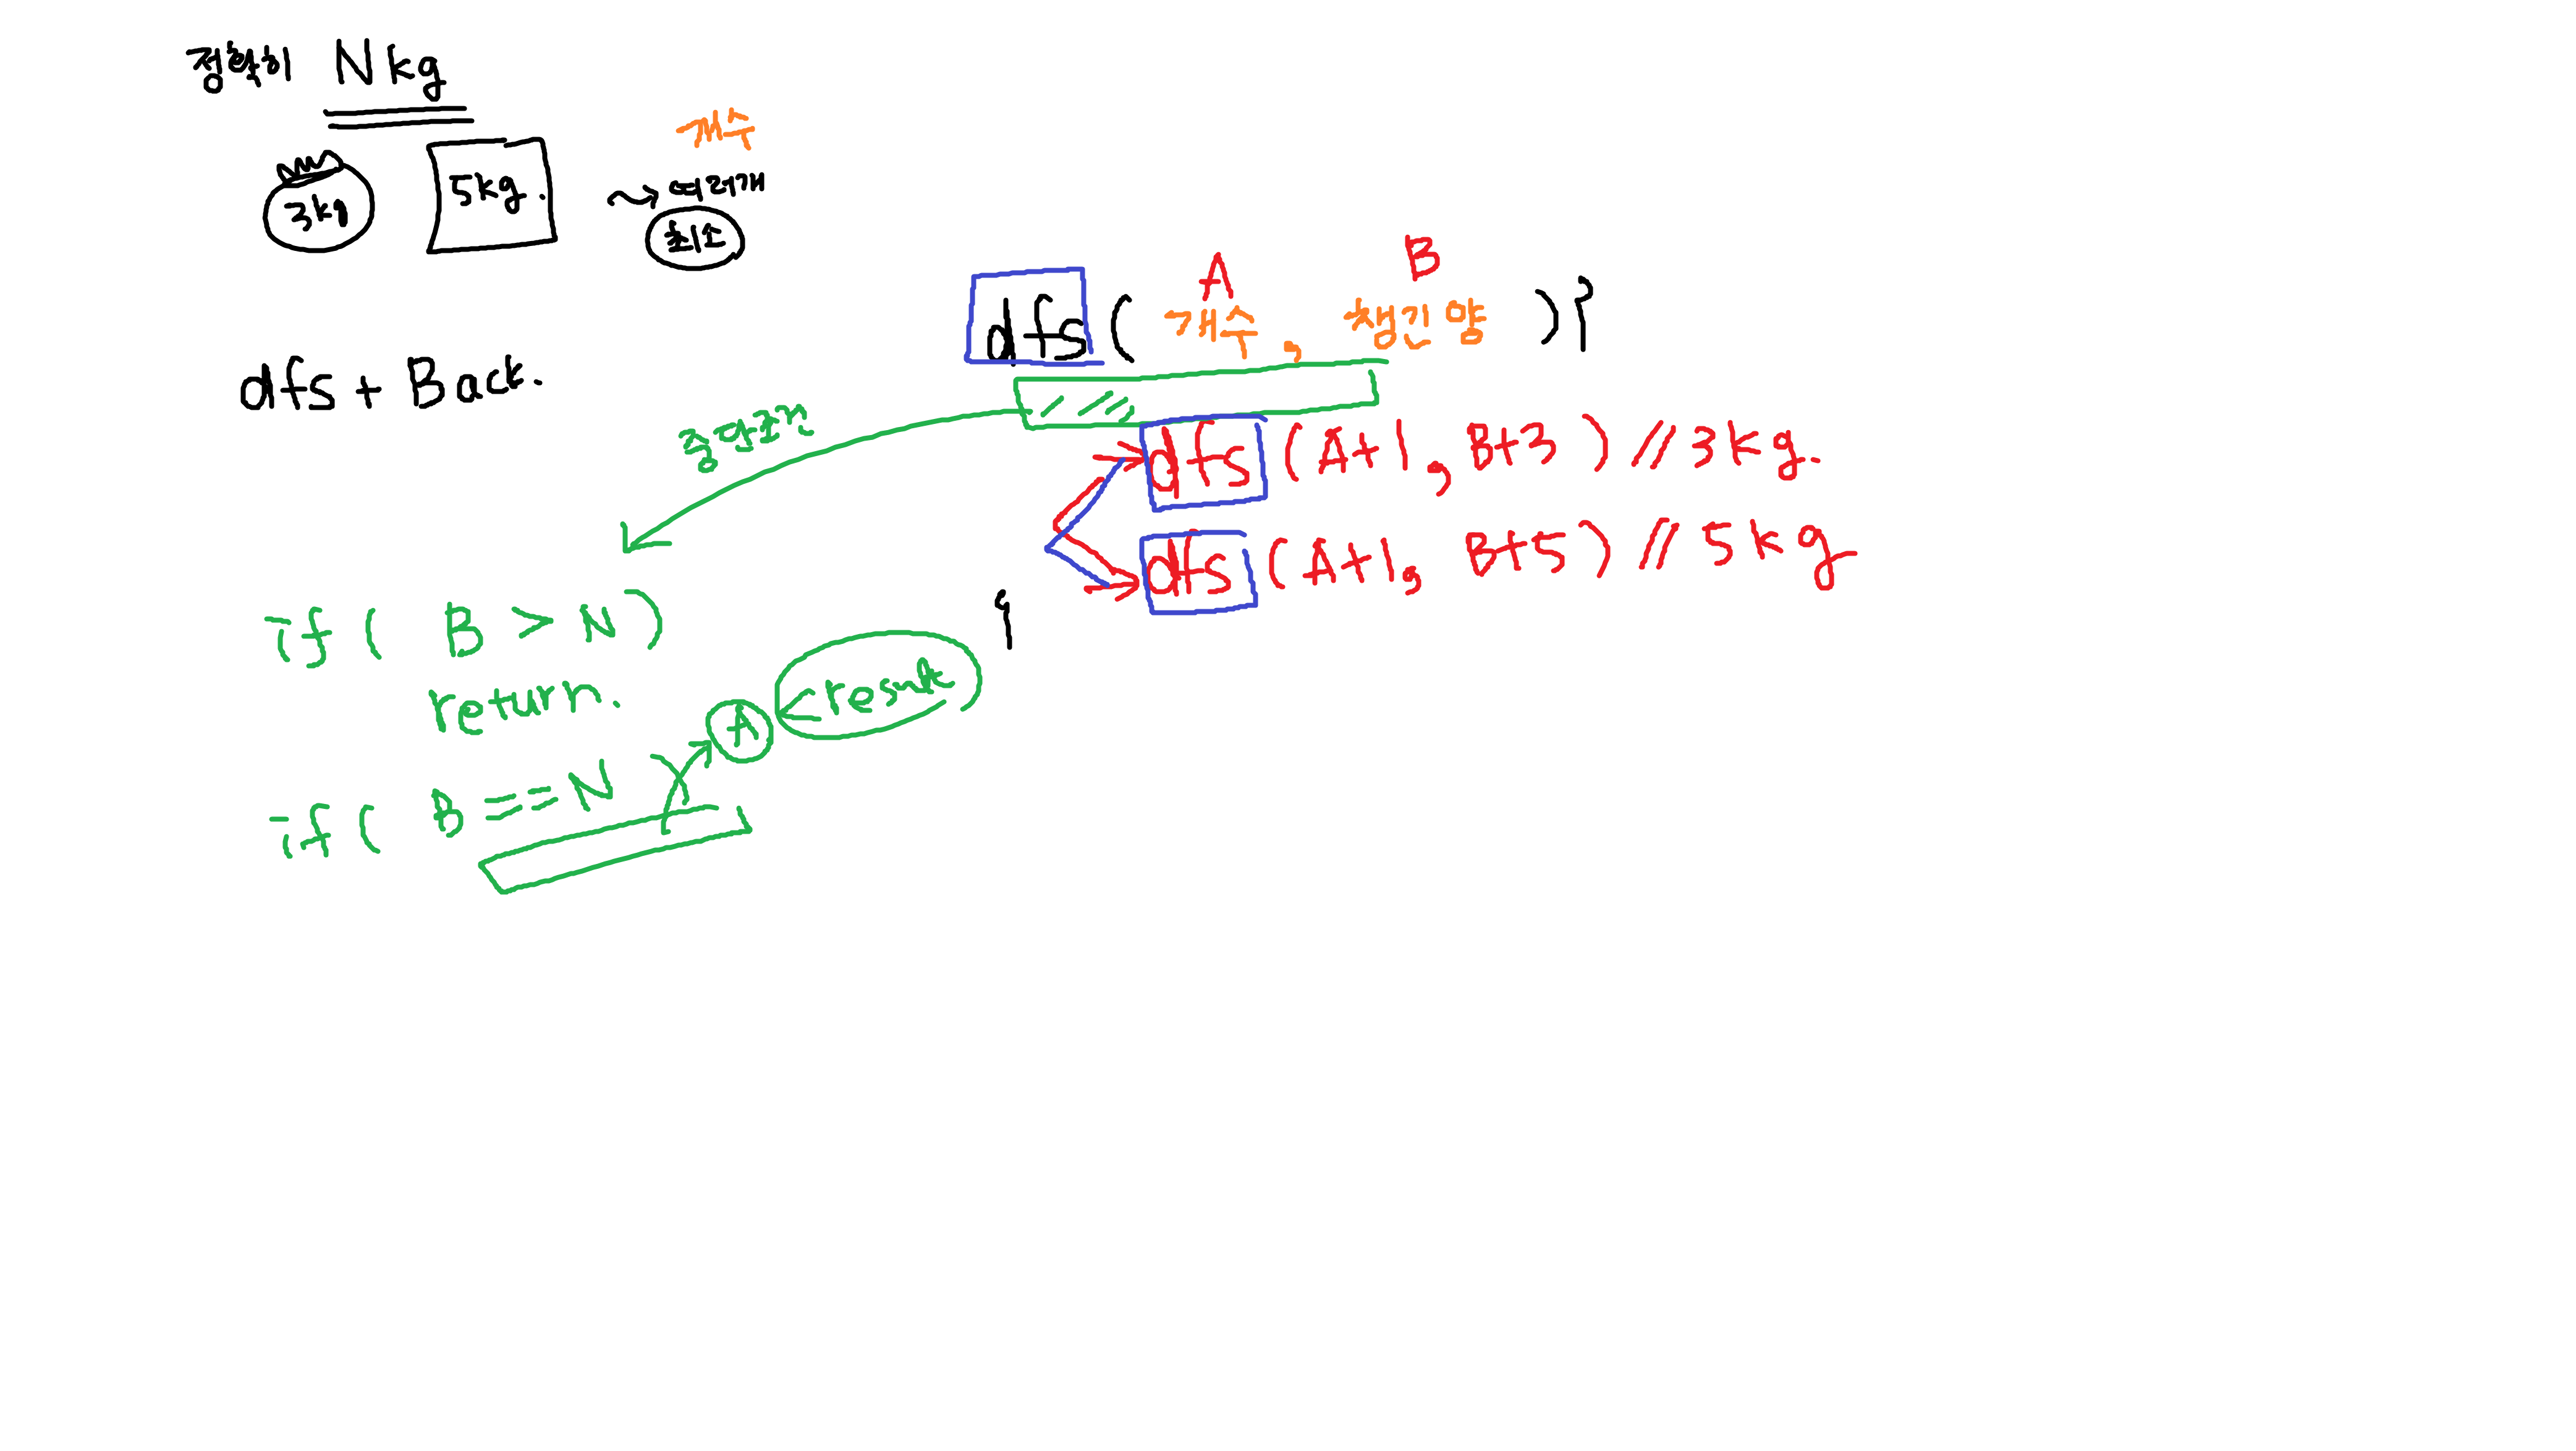 정확히 Nkg
3kg
5kg.
개수
여러개
최소
dfs + Back.
A B
dfs ( 개수 , 챙긴 양 ) {
dfs (A+1, B+3) // 3kg.
dfs (A+1, B+5) // 5kg
}
중단조건
if ( B > N )
return.
if ( B == N )
A < result